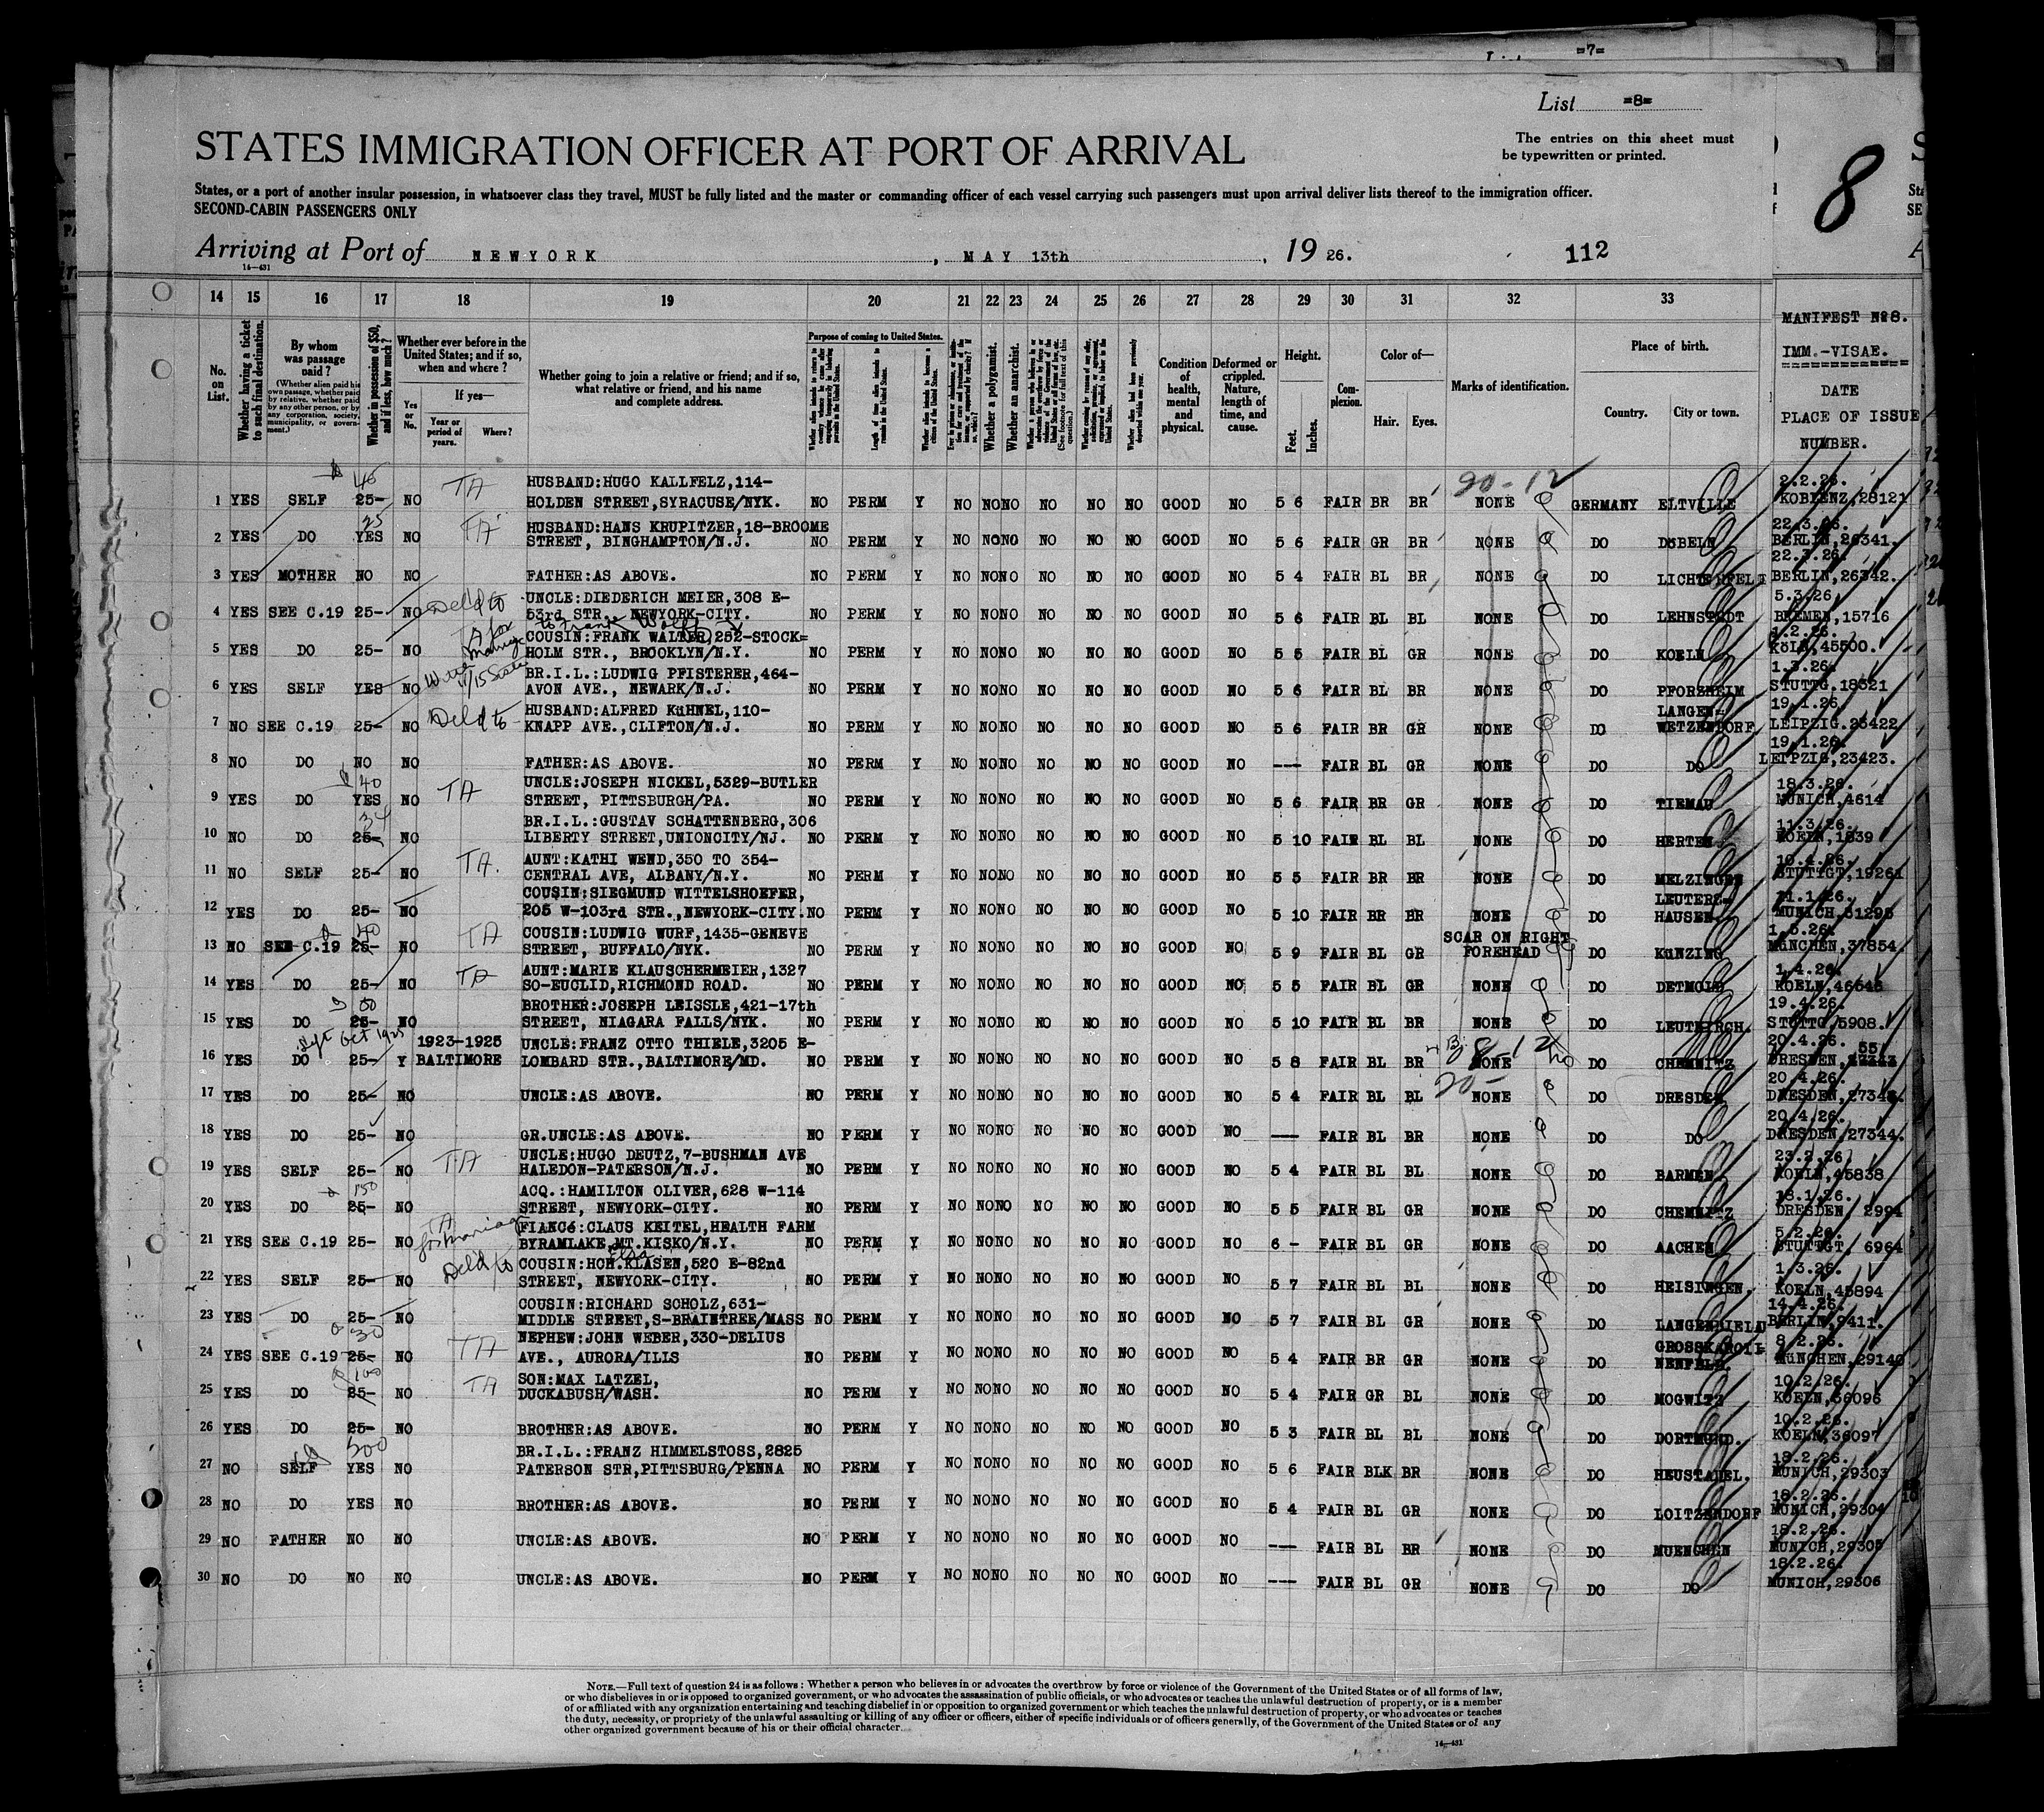 =7=
List =8=
STATES IMMIGRATION OFFICER AT PORT OF ARRIVAL
The entries on this sheet must be typewritten or printed.
8
States, or a port of another insular possession, in whatsoever class they travel, MUST be fully listed and the master or commanding officer of each vessel carrying such passengers must upon arrival deliver lists thereof to the immigration officer.
SECOND-CABIN PASSENGERS ONLY
Arriving at Port of NEWYORK, MAY 13th, 19 26. 112
14—431
14 15 16 17 18 19 20 21 22 23 24 25 26 27 28 29 30 31 32 33
MANIFEST No8.
IMM.-VISAE.
DATE
PLACE OF ISSUE
NUMBER.
No. on List.
Whether having a ticket to such final destination.
By whom was passage paid?
(Whether alien paid his own passage, whether paid by relative, whether paid by any other person, or by any corporation, society, municipality, or government.)
Whether in possession of $50, and if less, how much?
Whether ever before in the United States; and if so, when and where?
Yes or No.
If yes—
Year or period of years.
Where?
Whether going to join a relative or friend; and if so, what relative or friend, and his name and complete address.
Purpose of coming to United States.
Whether a polygamist.
Whether an anarchist.
Condition of health, mental and physical.
Deformed or crippled. Nature, length of time, and cause.
Height.
Feet. Inches.
Complexion.
Color of—
Hair. Eyes.
Marks of identification.
Place of birth.
Country. City or town.
HUSBAND:HUGO KALLFELZ,114- 2.2.26.
1 YES SELF 25- NO TA HOLDEN STREET,SYRACUSE/NYK. NO PERM Y NO NO NO NO NO NO GOOD NO 5 6 FAIR BR BR NONE GERMANY ELTVILLE KOBLENZ,28121
HUSBAND:HANS KRUPITZER,18-BROOME 22.3.26.
2 YES DO YES NO TA STREET, BINGHAMPTON/N.J. NO PERM Y NO NO NO NO NO NO GOOD NO 5 6 FAIR GR BR NONE DO DöBELN BERLIN,26341.
22.3.26.
3 YES MOTHER NO NO FATHER:AS ABOVE. NO PERM Y NO NO NO NO NO NO GOOD NO 5 4 FAIR BL BR NONE DO LICHTERFELT BERLIN,26342.
UNCLE:DIEDERICH MEIER,308 E- 5.3.26.
4 YES SEE C.19 25- NO Deld to 53rd STR., NEWYORK-CITY. NO PERM Y NO NO NO NO NO NO GOOD NO 5 6 FAIR BL BL NONE DO LEHNSTEDT BREMEN,15716
COUSIN:FRANK WALTER,252-STOCK= 1.2.26.
5 YES DO 25- NO HOLM STR., BROOKLYN/N.Y. NO PERM Y NO NO NO NO NO NO GOOD NO 5 5 FAIR BL GR NONE DO KOELN KöLN,45500.
BR.I.L.:LUDWIG PFISTERER,464- 1.3.26.
6 YES SELF YES NO AVON AVE., NEWARK/N.J. NO PERM Y NO NO NO NO NO NO GOOD NO 5 6 FAIR BL BR NONE DO PFORZHEIM STUTTG.18321
HUSBAND:ALFRED KüHNEL,110- LANGEN= 19.1.26.
7 NO SEE C.19 25- NO Deld to KNAPP AVE.,CLIFTON/N.J. NO PERM Y NO NO NO NO NO NO GOOD NO 5 6 FAIR BR GR NONE DO WETZENDORF LEIPZIG.23422
19.1.26.
8 NO DO NO NO FATHER:AS ABOVE. NO PERM Y NO NO NO NO NO NO GOOD NO --- FAIR BL GR NONE DO DO LEIPZIG,23423.
40 UNCLE:JOSEPH NICKEL,5329-BUTLER 18.3.26.
9 YES DO YES NO TA STREET, PITTSBURGH/PA. NO PERM Y NO NO NO NO NO NO GOOD NO 5 6 FAIR BR GR NONE DO TIEMAU MUNICH,4614
BR.I.L.:GUSTAV SCHATTENBERG,306 11.3.26.
10 NO DO 25- NO LIBERTY STREET,UNIONCITY/NJ. NO PERM Y NO NO NO NO NO NO GOOD NO 5 10 FAIR BL BL NONE DO HERTEN KOELN,1839
AUNT:KATHI WEND,350 TO 354- 10.4.26.
11 NO SELF 25- NO TA. CENTRAL AVE, ALBANY/N.Y. NO PERM Y NO NO NO NO NO NO GOOD NO 5 5 FAIR BR BR NONE DO MELZINGEN STUTTGT,19261
COUSIN:SIEGMUND WITTELSHOEFER, LEUTERS- 21.1.26.
12 YES DO 25- NO 205 W-103rd STR.,NEWYORK-CITY. NO PERM Y NO NO NO NO NO NO GOOD NO 5 10 FAIR BR BR NONE DO HAUSEN MUNICH,31295
COUSIN:LUDWIG WURF,1435-GENEVE SCAR ON RIGHT 1.5.26.
13 NO SEE C.19 25- NO TA STREET, BUFFALO/NYK. NO PERM Y NO NO NO NO NO NO GOOD NO 5 9 FAIR BL GR FOREHEAD DO KüNZING MüNCHEN,37854
AUNT:MARIE KLAUSCHERMEIER,1327 1.4.26.
14 YES DO 25- NO TA SO-EUCLID,RICHMOND ROAD. NO PERM Y NO NO NO NO NO NO GOOD NO 5 5 FAIR BL GR NONE DO DETMOLD KOELN,46646
BROTHER:JOSEPH LEISSLE,421-17th 19.4.26.
15 YES DO 25- NO STREET, NIAGARA FALLS/NYK. NO PERM Y NO NO NO NO NO NO GOOD NO 5 10 FAIR BL BR NONE DO LEUTKIRCH. STUTTG,5908.
1923-1925 UNCLE:FRANZ OTTO THIELE,3205 E- 20.4.26.
16 YES DO 25- Y BALTIMORE LOMBARD STR.,BALTIMORE/MD. NO PERM Y NO NO NO NO NO NO GOOD NO 5 8 FAIR BL BR NONE DO CHEMNITZ DRESDEN,
20.4.26.
17 YES DO 25- NO UNCLE:AS ABOVE. NO PERM Y NO NO NO NO NO NO GOOD NO 5 4 FAIR BL BL NONE DO DRESDEN DRESDEN,27343.
20.4.26.
18 YES DO 25- NO GR.UNCLE:AS ABOVE. NO PERM Y NO NO NO NO NO NO GOOD NO --- FAIR BL BR NONE DO DO DRESDEN,27344.
UNCLE:HUGO DEUTZ,7-BUSHMAN AVE 23.2.26.
19 YES SELF 25- NO TA HALEDON-PATERSON/N.J. NO PERM Y NO NO NO NO NO NO GOOD NO 5 4 FAIR BL BL NONE DO BARMEN. KOELN,45838
150 ACQ.:HAMILTON OLIVER,628 W-114 18.1.26.
20 YES DO 25- NO STREET, NEWYORK-CITY. NO PERM Y NO NO NO NO NO NO GOOD NO 5 5 FAIR BL GR NONE DO CHEMNITZ DRESDEN. 2994
TA for marriage FIANCé:CLAUS KEITEL,HEALTH FARM 5.2.26.
21 YES SEE C.19 25- NO BYRAMLAKE,MT.KISKO/N.Y. NO PERM Y NO NO NO NO NO NO GOOD NO 6 - FAIR BL GR NONE DO AACHEN STUTTGT. 6964
Deld to COUSIN:HCH.KLASEN,520 E-82nd 1.3.26.
22 YES SELF 25- NO STREET, NEWYORK-CITY. NO PERM Y NO NO NO NO NO NO GOOD NO 5 7 FAIR BL BL NONE DO HEISINGEN. KOELN,45894
COUSIN:RICHARD SCHOLZ,631- 14.4.26.
23 YES DO 25- NO MIDDLE STREET,S-BRAINTREE/MASS NO PERM Y NO NO NO NO NO NO GOOD NO 5 7 FAIR BL GR NONE DO LANGENBIELAU BERLIN,9411.
30 NEPHEW:JOHN WEBER,330-DELIUS 8.2.26.
24 YES SEE C.19 25- NO TA AVE., AURORA/ILLS NO PERM Y NO NO NO NO NO NO GOOD NO 5 4 FAIR BR GR NONE DO MüNCHEN,29140
100 SON:MAX LATZEL, 10.2.26.
25 YES DO 25- NO TA DUCKABUSH/WASH. NO PERM Y NO NO NO NO NO NO GOOD NO 5 4 FAIR GR BL NONE DO MOGWITZ KOELN,36096
10.2.26.
26 YES DO 25- NO BROTHER:AS ABOVE. NO PERM Y NO NO NO NO NO NO GOOD NO 5 3 FAIR BL BL NONE DO DORTMUND. KOELN,36097
500 BR.I.L.:FRANZ HIMMELSTOSS,2825 18.2.26.
27 NO SELF YES NO PATERSON STR,PITTSBURG/PENNA NO PERM Y NO NO NO NO NO NO GOOD NO 5 6 FAIR BLK BR NONE DO HEUSTADEL. MUNICH,29303
18.2.26.
28 NO DO YES NO BROTHER:AS ABOVE. NO PERM Y NO NO NO NO NO NO GOOD NO 5 4 FAIR BL GR NONE DO LOITZENDORF MUNICH,29304
18.2.26.
29 NO FATHER NO NO UNCLE:AS ABOVE. NO PERM Y NO NO NO NO NO NO GOOD NO --- FAIR BL BR NONE DO MUENCHEN MUNICH,29305
18.2.26.
30 NO DO NO NO UNCLE:AS ABOVE. NO PERM Y NO NO NO NO NO NO GOOD NO --- FAIR BL GR NONE DO DO MUNICH,29306
NOTE.—Full text of question 24 is as follows: Whether a person who believes in or advocates the overthrow by force or violence of the Government of the United States or of all forms of law,
or who disbelieves in or is opposed to organized government, or who advocates the assassination of public officials, or who advocates or teaches the unlawful destruction of property, or is a member
of or affiliated with any organization entertaining and teaching disbelief in or opposition to organized government or which teaches the unlawful destruction of property, or who advocates or teaches
the duty, necessity, or propriety of the unlawful assaulting or killing of any officer or officers, either of specific individuals or of officers generally, of the Government of the United States or of any
other organized government because of his or their official character.
14—431